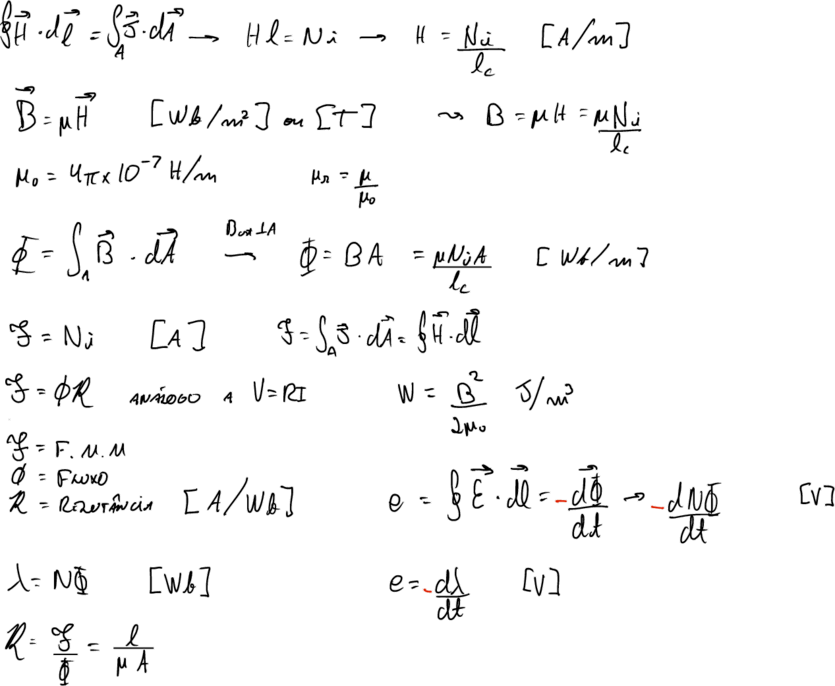 ∮H⃗·dl⃗ = ∫_A J⃗·dA⃗ → Hl = Ni → H = Ni/l_c [A/m]
B⃗ = μH⃗ [Wb/m²] ou [T] ⇝ B = μH = μNi/l_c
μ₀ = 4π×10⁻⁷ H/m μr = μ/μ₀
Φ = ∫_A B⃗·dA⃗ → Φ = BA = μNiA/l_c [Wb/m]
ℱ = Ni [A] ℱ = ∫_A J⃗·dA⃗ = ∮H⃗·dl⃗
ℱ = ϕR ANÁLOGO A V=RI W = B²/2μ₀ J/m³
ℱ = F.M.M
Φ = FLUXO
R = RELUTÂNCIA [A/Wb] e = ∮E⃗·dl⃗ = -dΦ⃗/dt → -dNΦ/dt [V]
λ = NΦ [Wb] e = -dλ/dt [V]
R = ℱ/Φ = l/μA